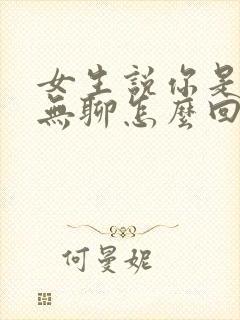 女生說你是
無聊怎麼回
何曼妮